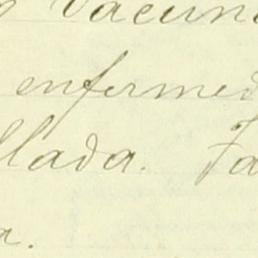 vacun
enfermed
llada. Fa
a.